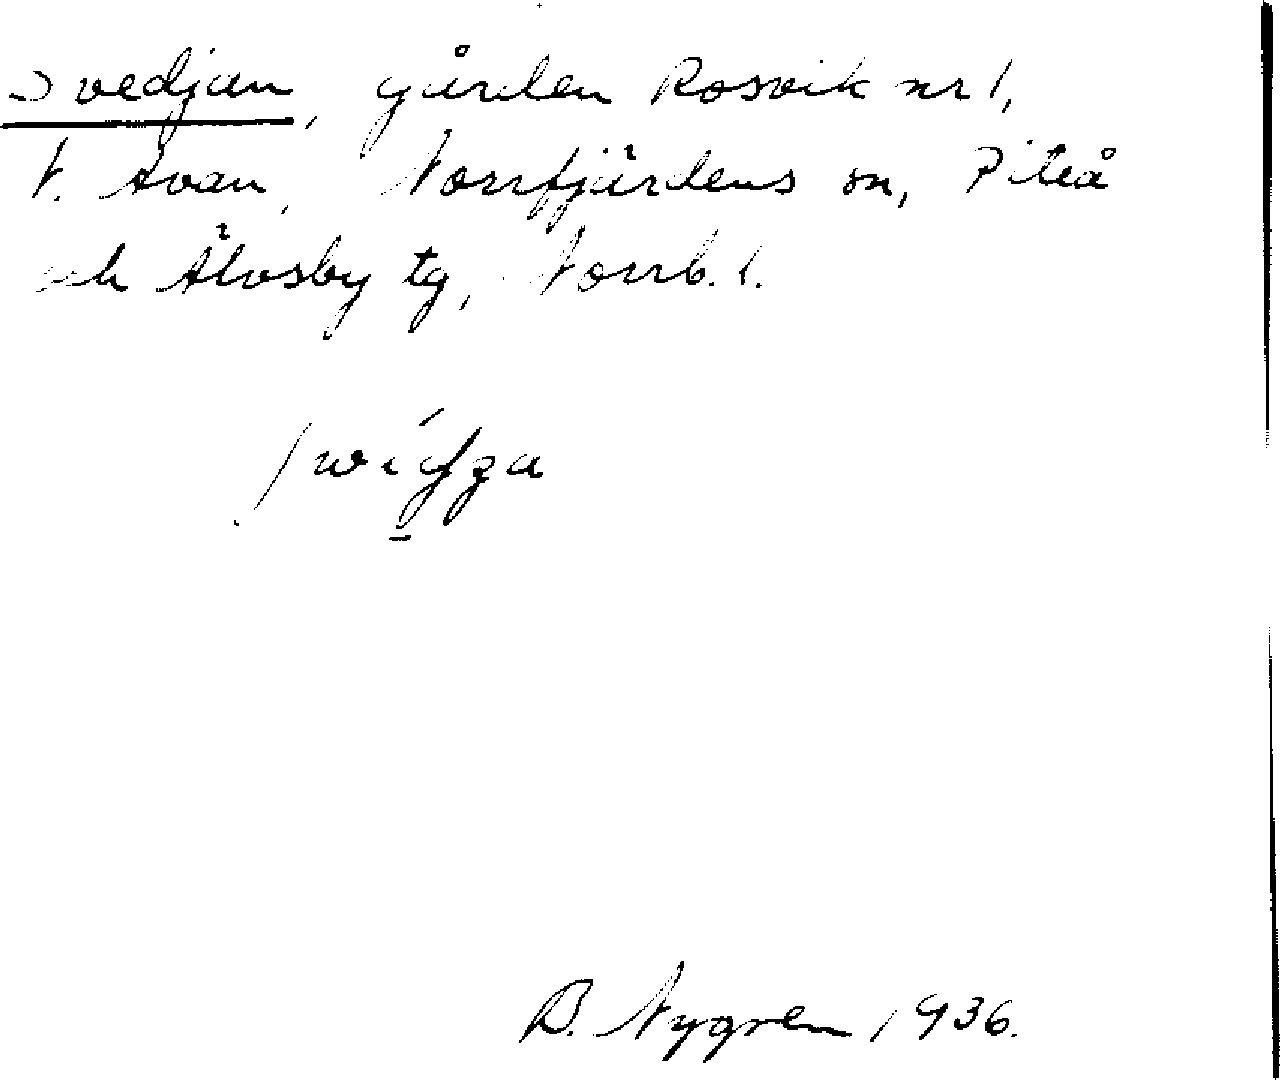 Svedjan, gården Rosvik nr 1,
N. Avan, Norrfjärdens sn, Piteå
och Älvsby tg, Norrb. l.
B. Nygren 1936.